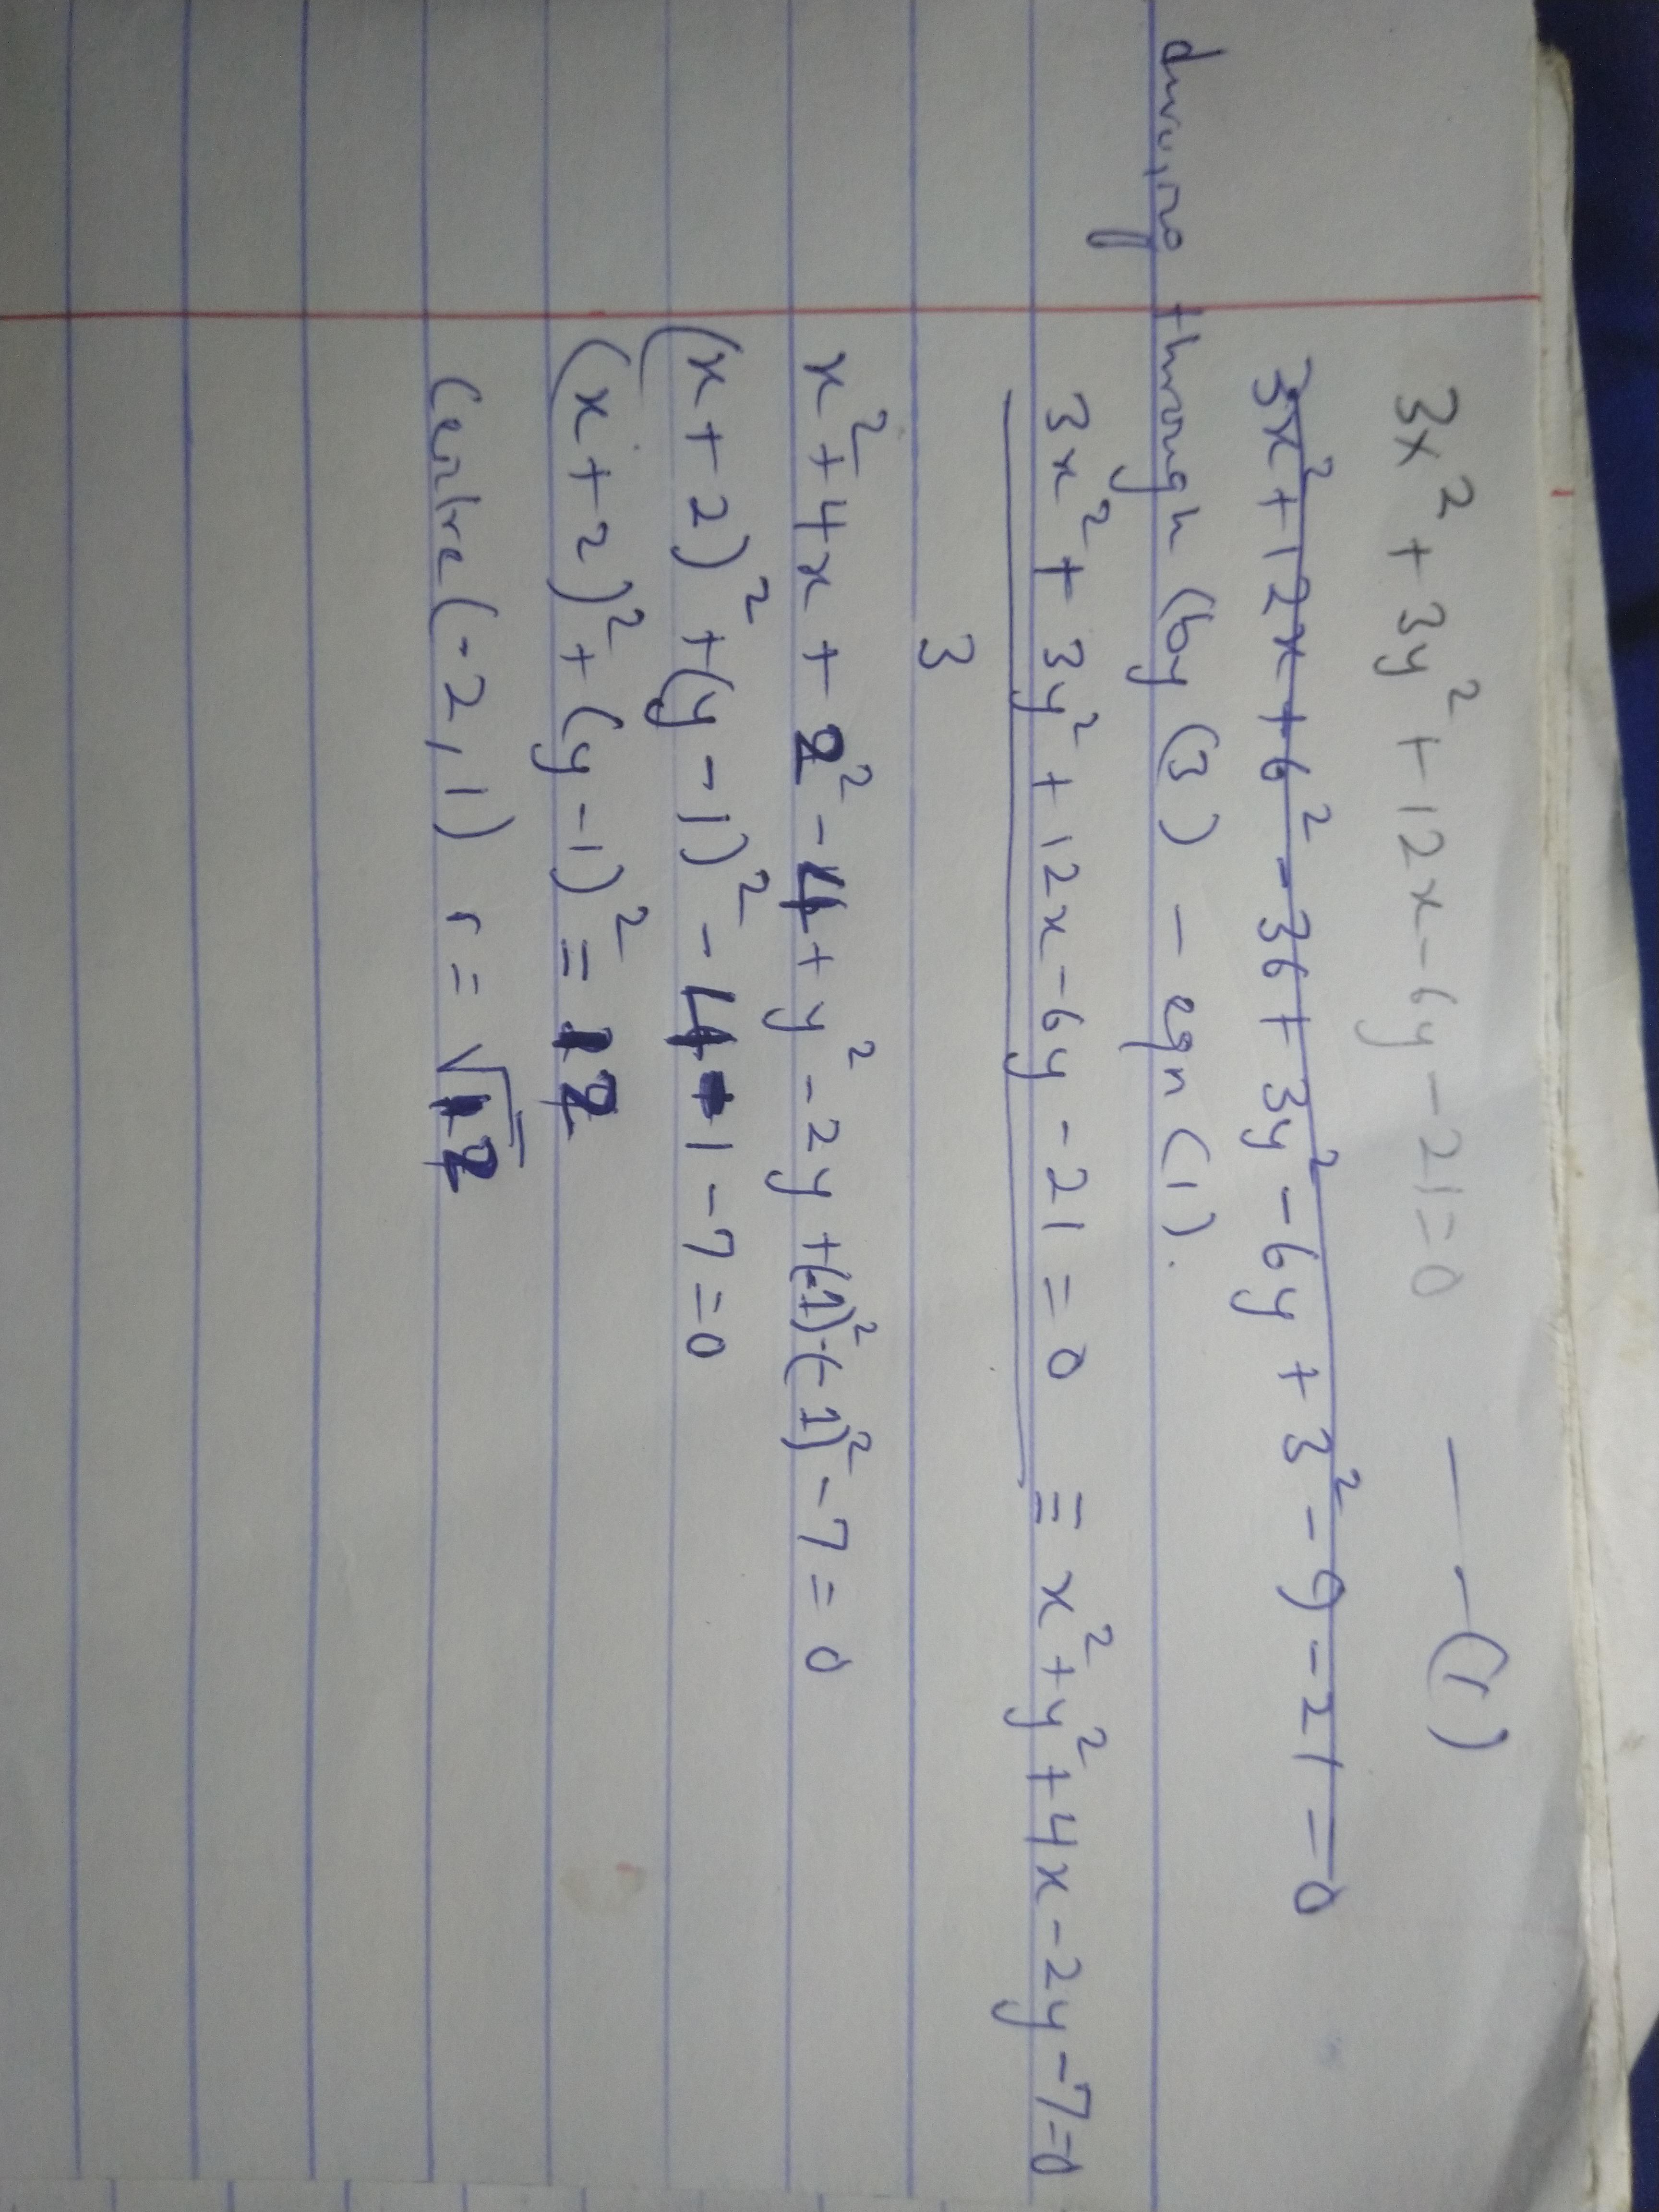 3x² + 3y² + 12x - 6y - 21 = 0 — (1)
3x² + 12x + 6² - 36 + 3y² - 6y + 3² - 9 - 21 = 0
through (by (3) - eqn (1).
3x² + 3y² + 12x - 6y - 21 = 0 = x² + y² + 4x - 2y - 7 = 0
3
x² + 4x + 2² - 4 + y² - 2y + (-1)² - (-1)² - 7 = 0
(x + 2)² + (y - 1)² - 4 - 1 - 7 = 0
(x + 2)² + (y - 1)² = 12
Centre (-2, 1) r = √12